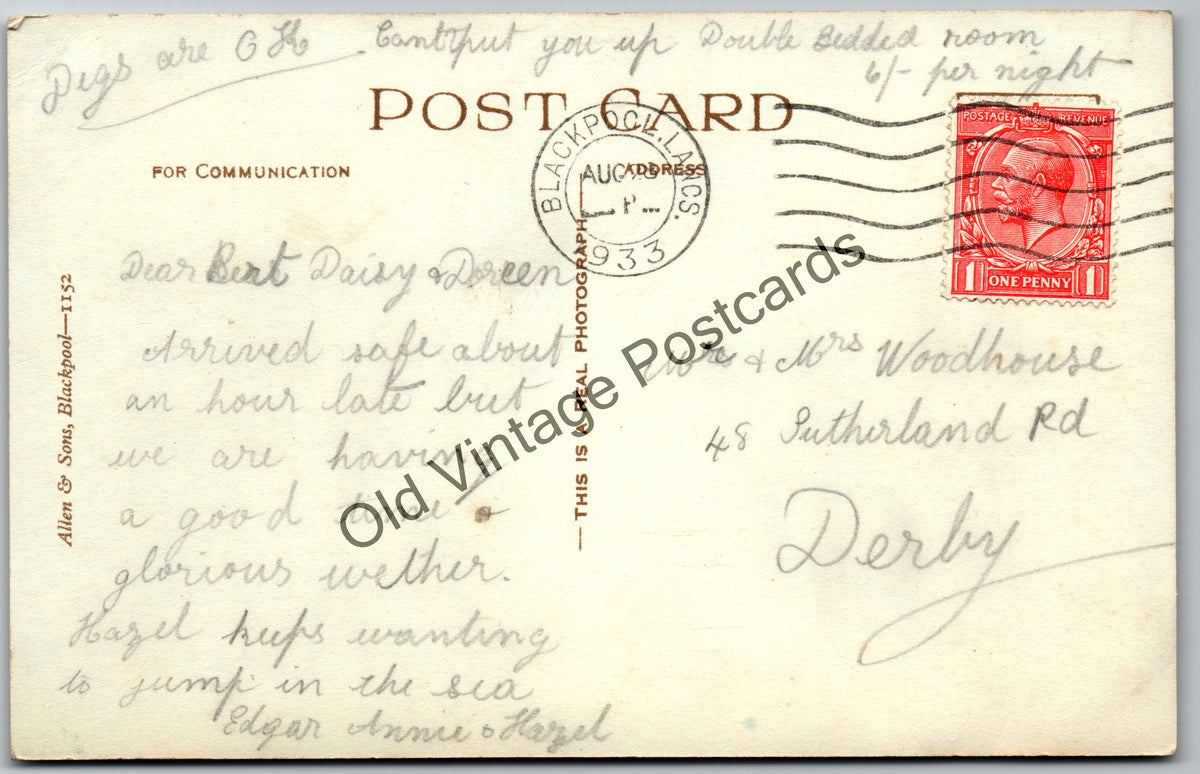 Digs are OK Cant put you up Double Bedded room
6/- per night
POST CARD
FOR COMMUNICATION
ADDRESS
BLACKPOOL. LANCS.
AUG
P
1933
POSTAGE REVENUE
1 ONE PENNY 1
Allen & Sons, Blackpool—1152
—THIS IS A REAL PHOTOGRAPH
Old Vintage Postcards
Dear Bert Daisy & Doreen
Arrived safe about
an hour late but
we are having
a good time &
glorious wether.
Hazel keeps wanting
to jump in the sea
Edgar Annie & Hazel
Mr & Mrs Woodhouse
48 Sutherland Rd
Derby